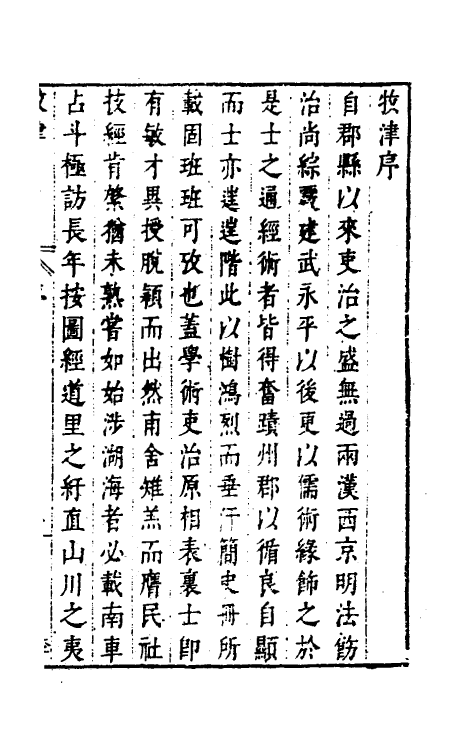 牧津序
自郡縣以來吏治之盛無過兩漢西京明法飭
治尚綜覈建武永平以後更以儒術緣飾之於
是士之通經術者皆得奮蹟州郡以循良自顯
而士亦遑遑階此以樹鴻烈而垂汗簡史冊所
載固班班可攷也蓋學術吏治原相表裏士卽
有敏才異授脫穎而出然甫舍雉羔而膺民社
技經肯綮猶未熟嘗如始涉湖海者必載南車
占斗極訪長年按圖經道里之紆直山川之夷
牧津
序